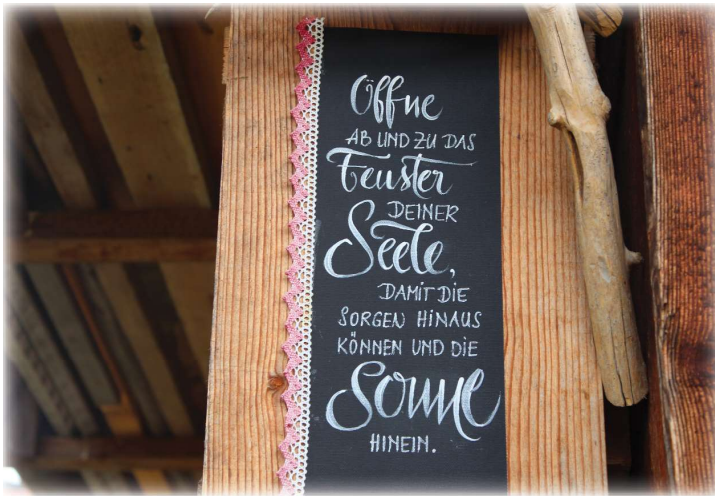 Öffne
AB UND ZU DAS
Fenster
DEINER
Seele,
DAMIT DIE
SORGEN HINAUS
KÖNNEN UND DIE
Sonne
HINEIN.